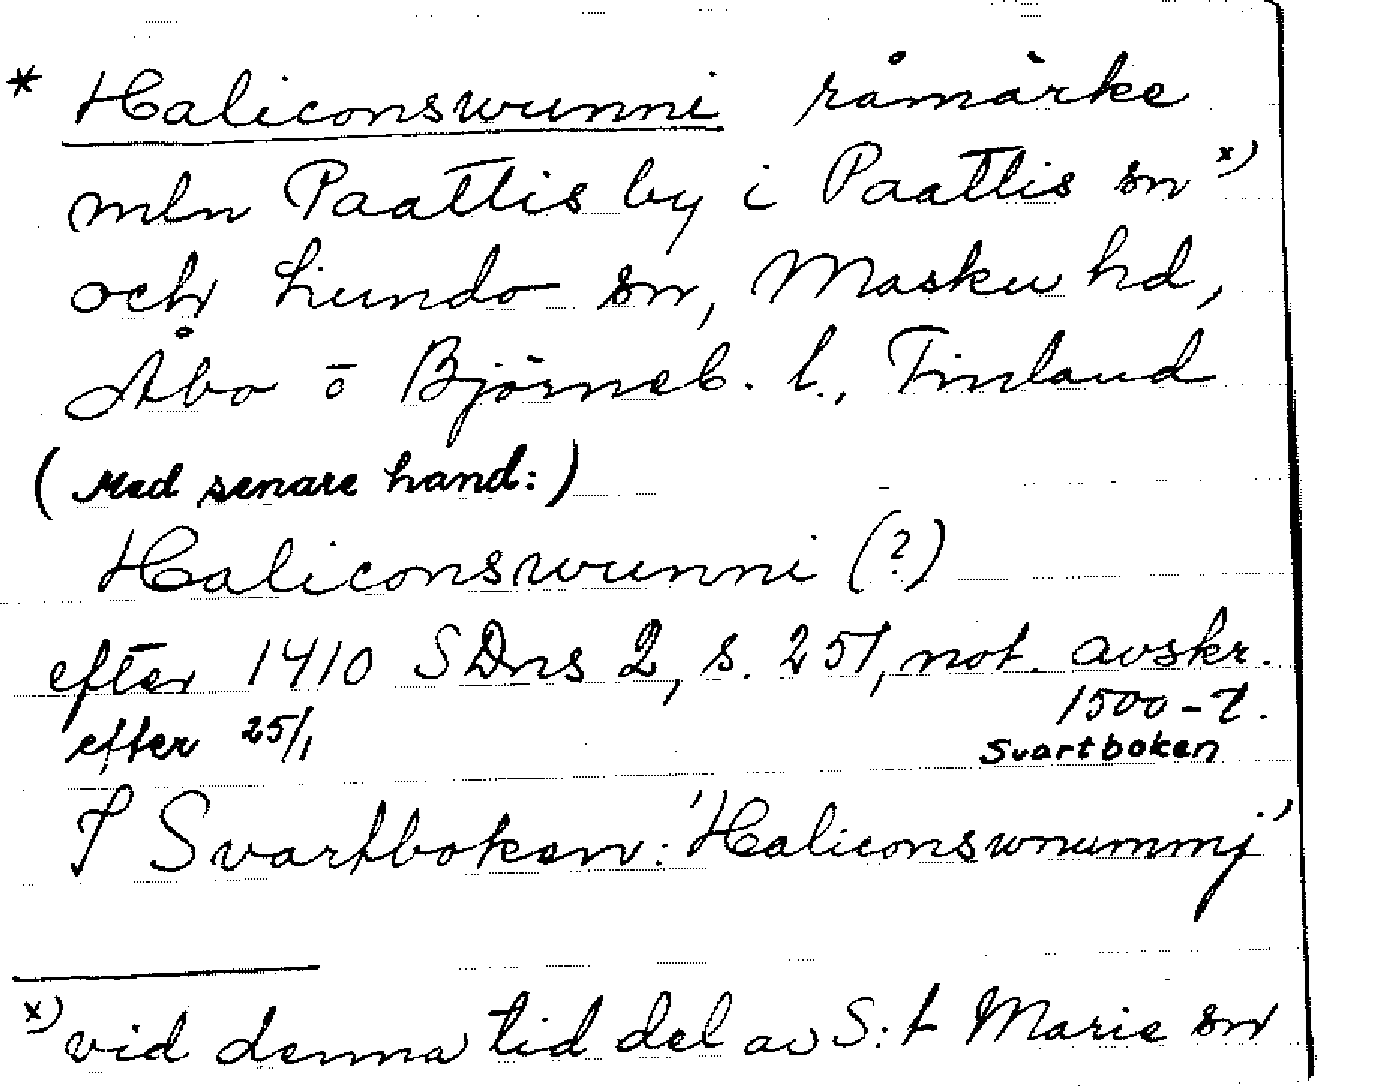 * Haliconswunni råmärke
mln Paattis by i Paattis sn x)
och Lundo sn, Masku hd,
Åbo o Björneb. l., Finland
(Med senare hand:)
Haliconswunni (?)
efter 1410 SDns 2, s. 251, not. avskr.
efter 25/1 1500-t.
Svartboken
I Svartboken: 'Haliconswnummj'
x) vid denna tid del av S:t Marie sn